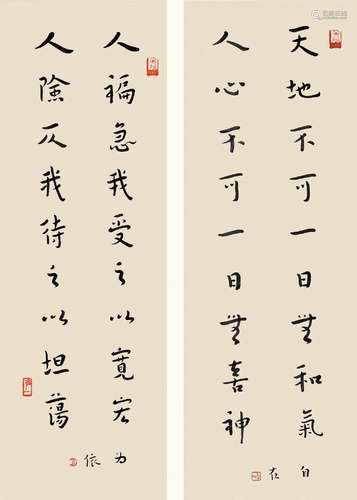 天地不可一日無和氣
人心不可一日無喜神
自在
人褊急我受之以寬宏
人險仄我待之以坦蕩
为依